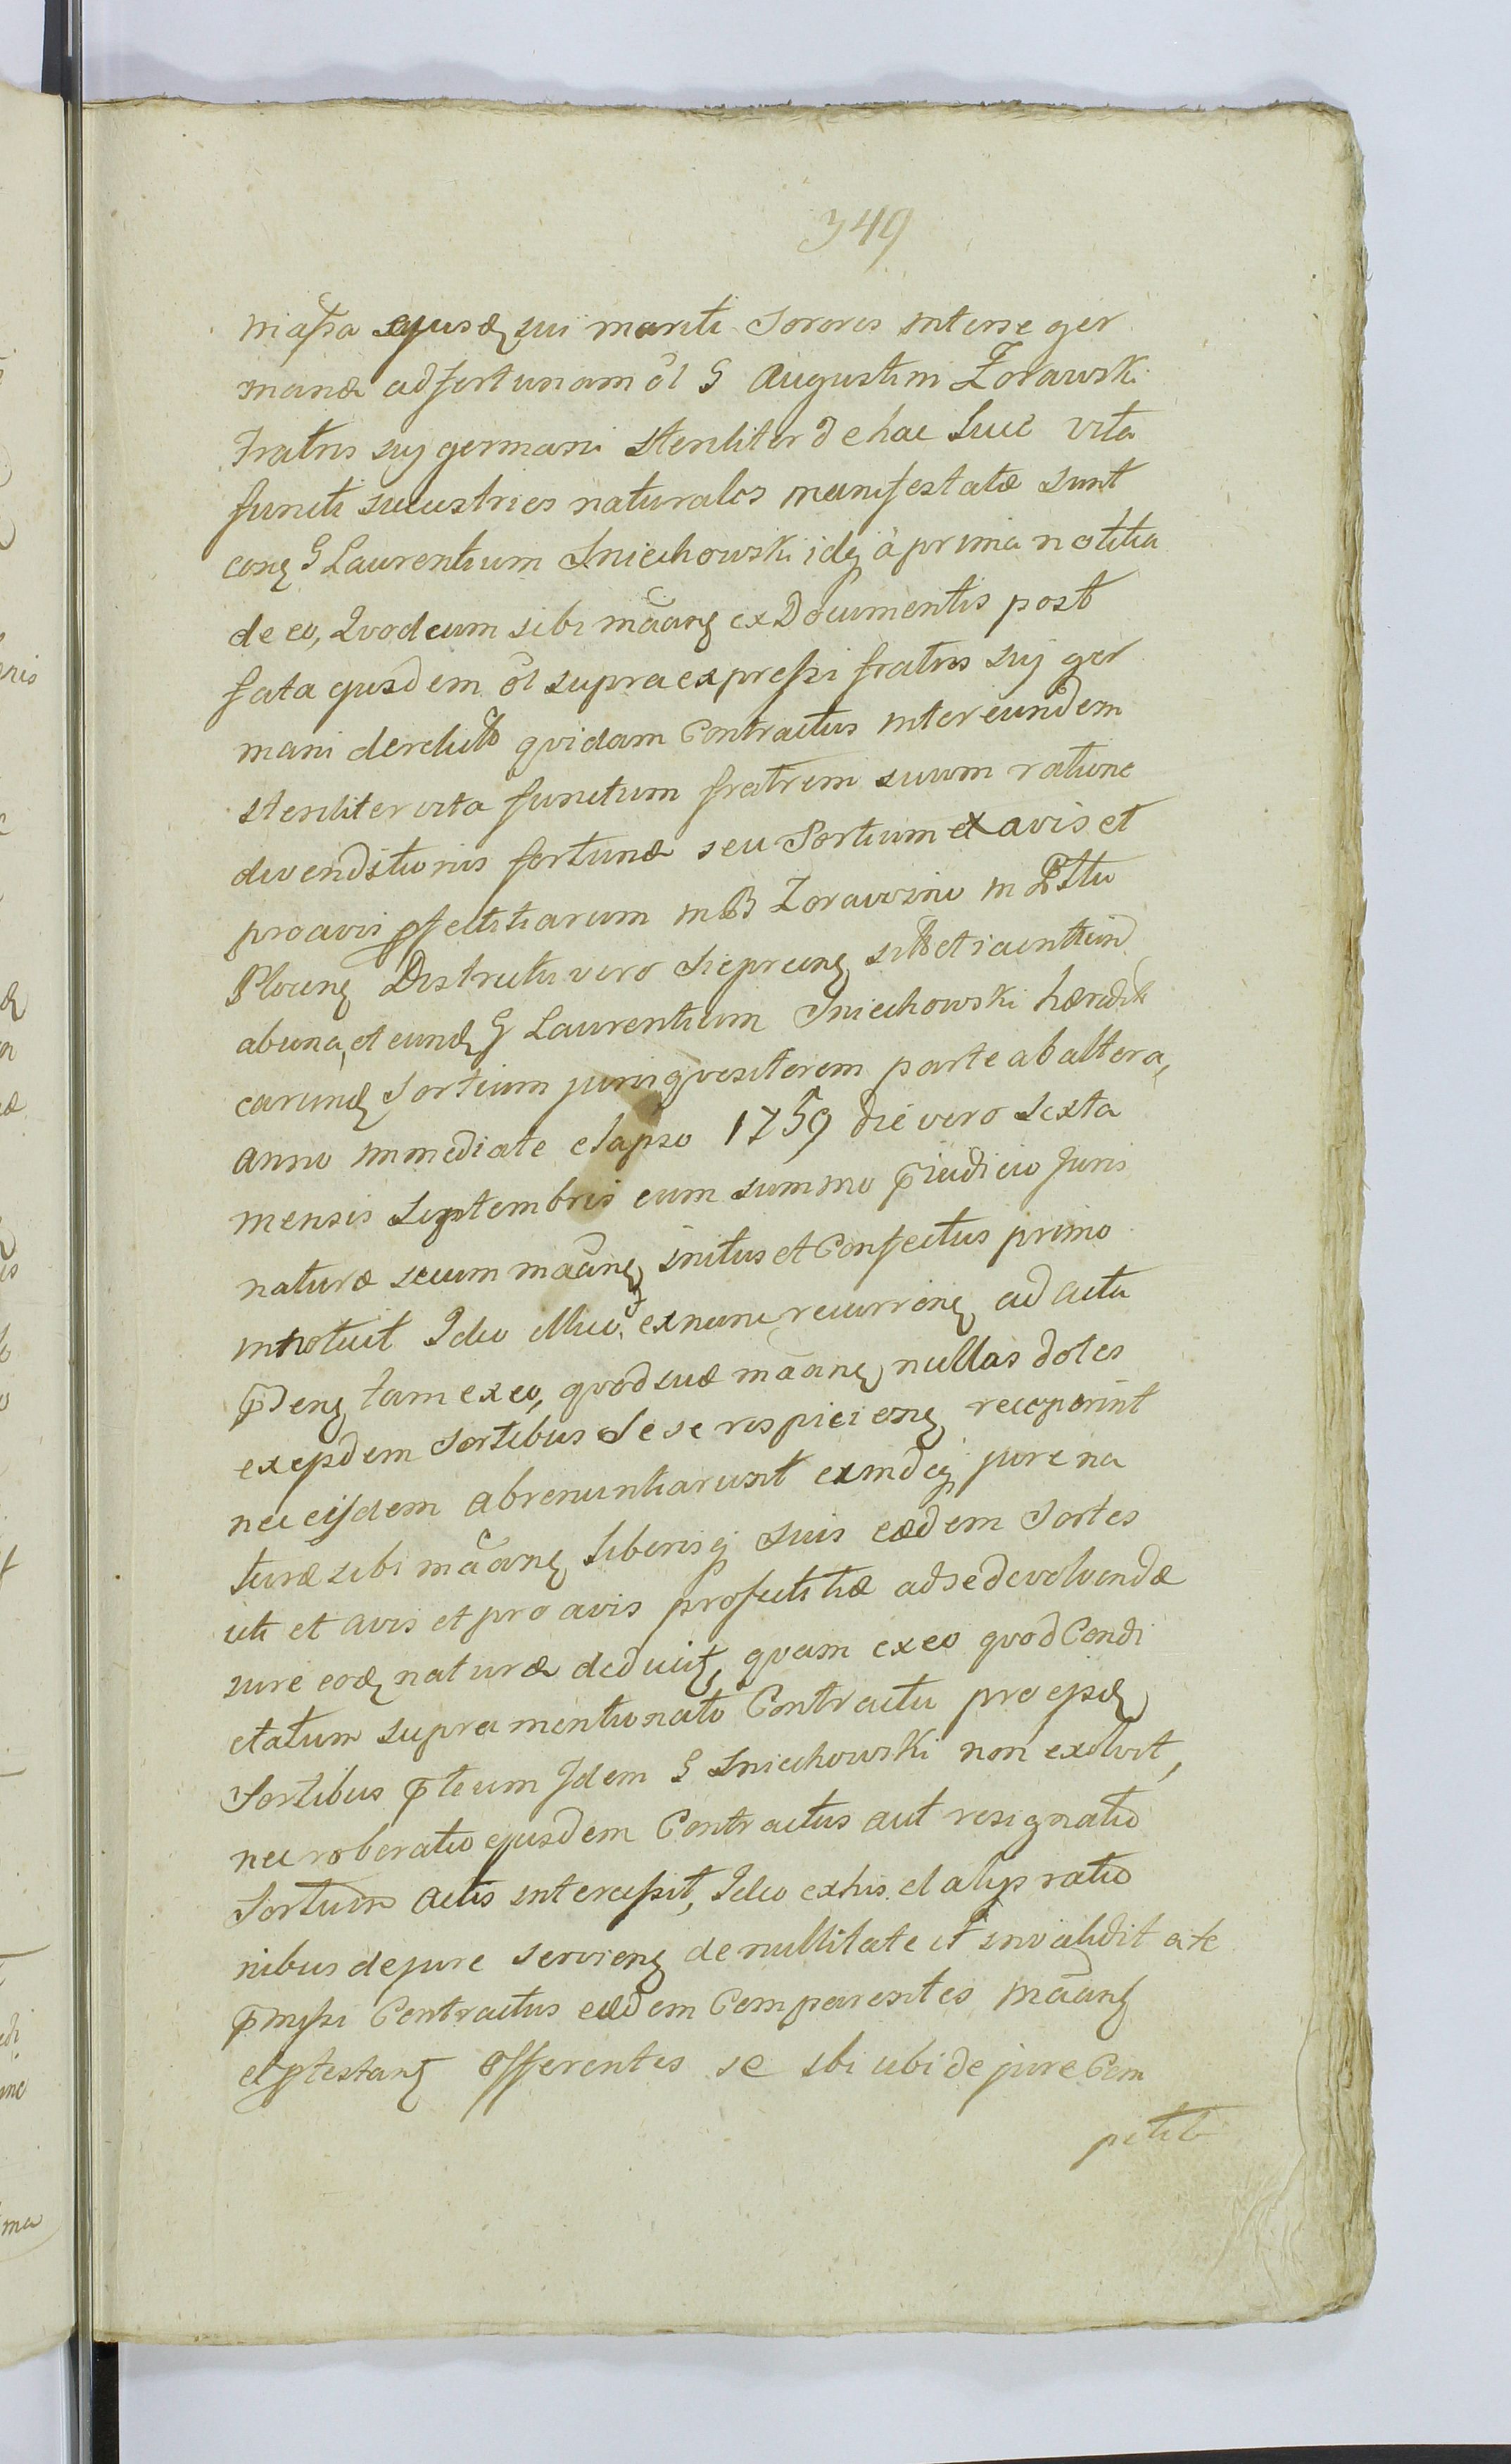 349
miaſsa ejusdꝫ sui mariti Sorores inter se ger
manæ ad fortunam ol G Augustini Zorawski
Fratris sui germani steriliter de hac Luce vita
functi successtrices naturales manifestatæ sunt
conꝫ G Laurentium Sniechowski idqꝫ à prima notitia
de eo, Quod cum sibi mãanꝫ ex Documentis post
fata ejusdem ol supra expreſsi fratris suj ger
mani derelictis quidam Contractus inter eundem
steriliter vita functum fratrem suum ratione
divenditionis fortunæ seu Sortium ex avis et
proavis profectitiarum in B Zorawino in Pttu
Plocenꝫ Districtu vero Sieprcenꝫ sitis et jacentium
ab una, et eundꝫ G Laurentium Sniechowski
earundꝫ Sortium jurisquesitorem parte ab altera,
anno immediate elapso 1759 die vero sexta
mensis Septembris cum summo p̄judicio juris
naturæ secum mãanꝫ initus et Confectus primo
innotuit Ideo illico ex nunc recurrenꝫ ad acta
p̄denꝫ tam ex eo, quod suæ mãanꝫ nullas dotes
ex ejsdem Sortibus Se se respicienꝫ receperint
nec eisdem abrenuntiarunt exindeqꝫ jure na
turæ sibi mãanꝫ liberisqꝫ suis eædem Sortes
uti et avis et proavis profectitiæ ad se devolvendæ
jure eodꝫ naturæ deducit, quam ex eo quod Condi
ctatum supra mentionato Contractu pro ejsdꝫ
Sortibus p̄tium Idem G Sniechowski non exolvit,
nec roboratio ejusdem Contractus aut resignatio
Sortium actis interceſsit, Ideo ex his et alijs ratio
nibus de jure servienꝫ de nullitate et invaliditate
p̄miſsi Contractus eædem Comparentes mãanꝫ
et ptestanꝫ offerentes se ibi ubi de jure Com
petit